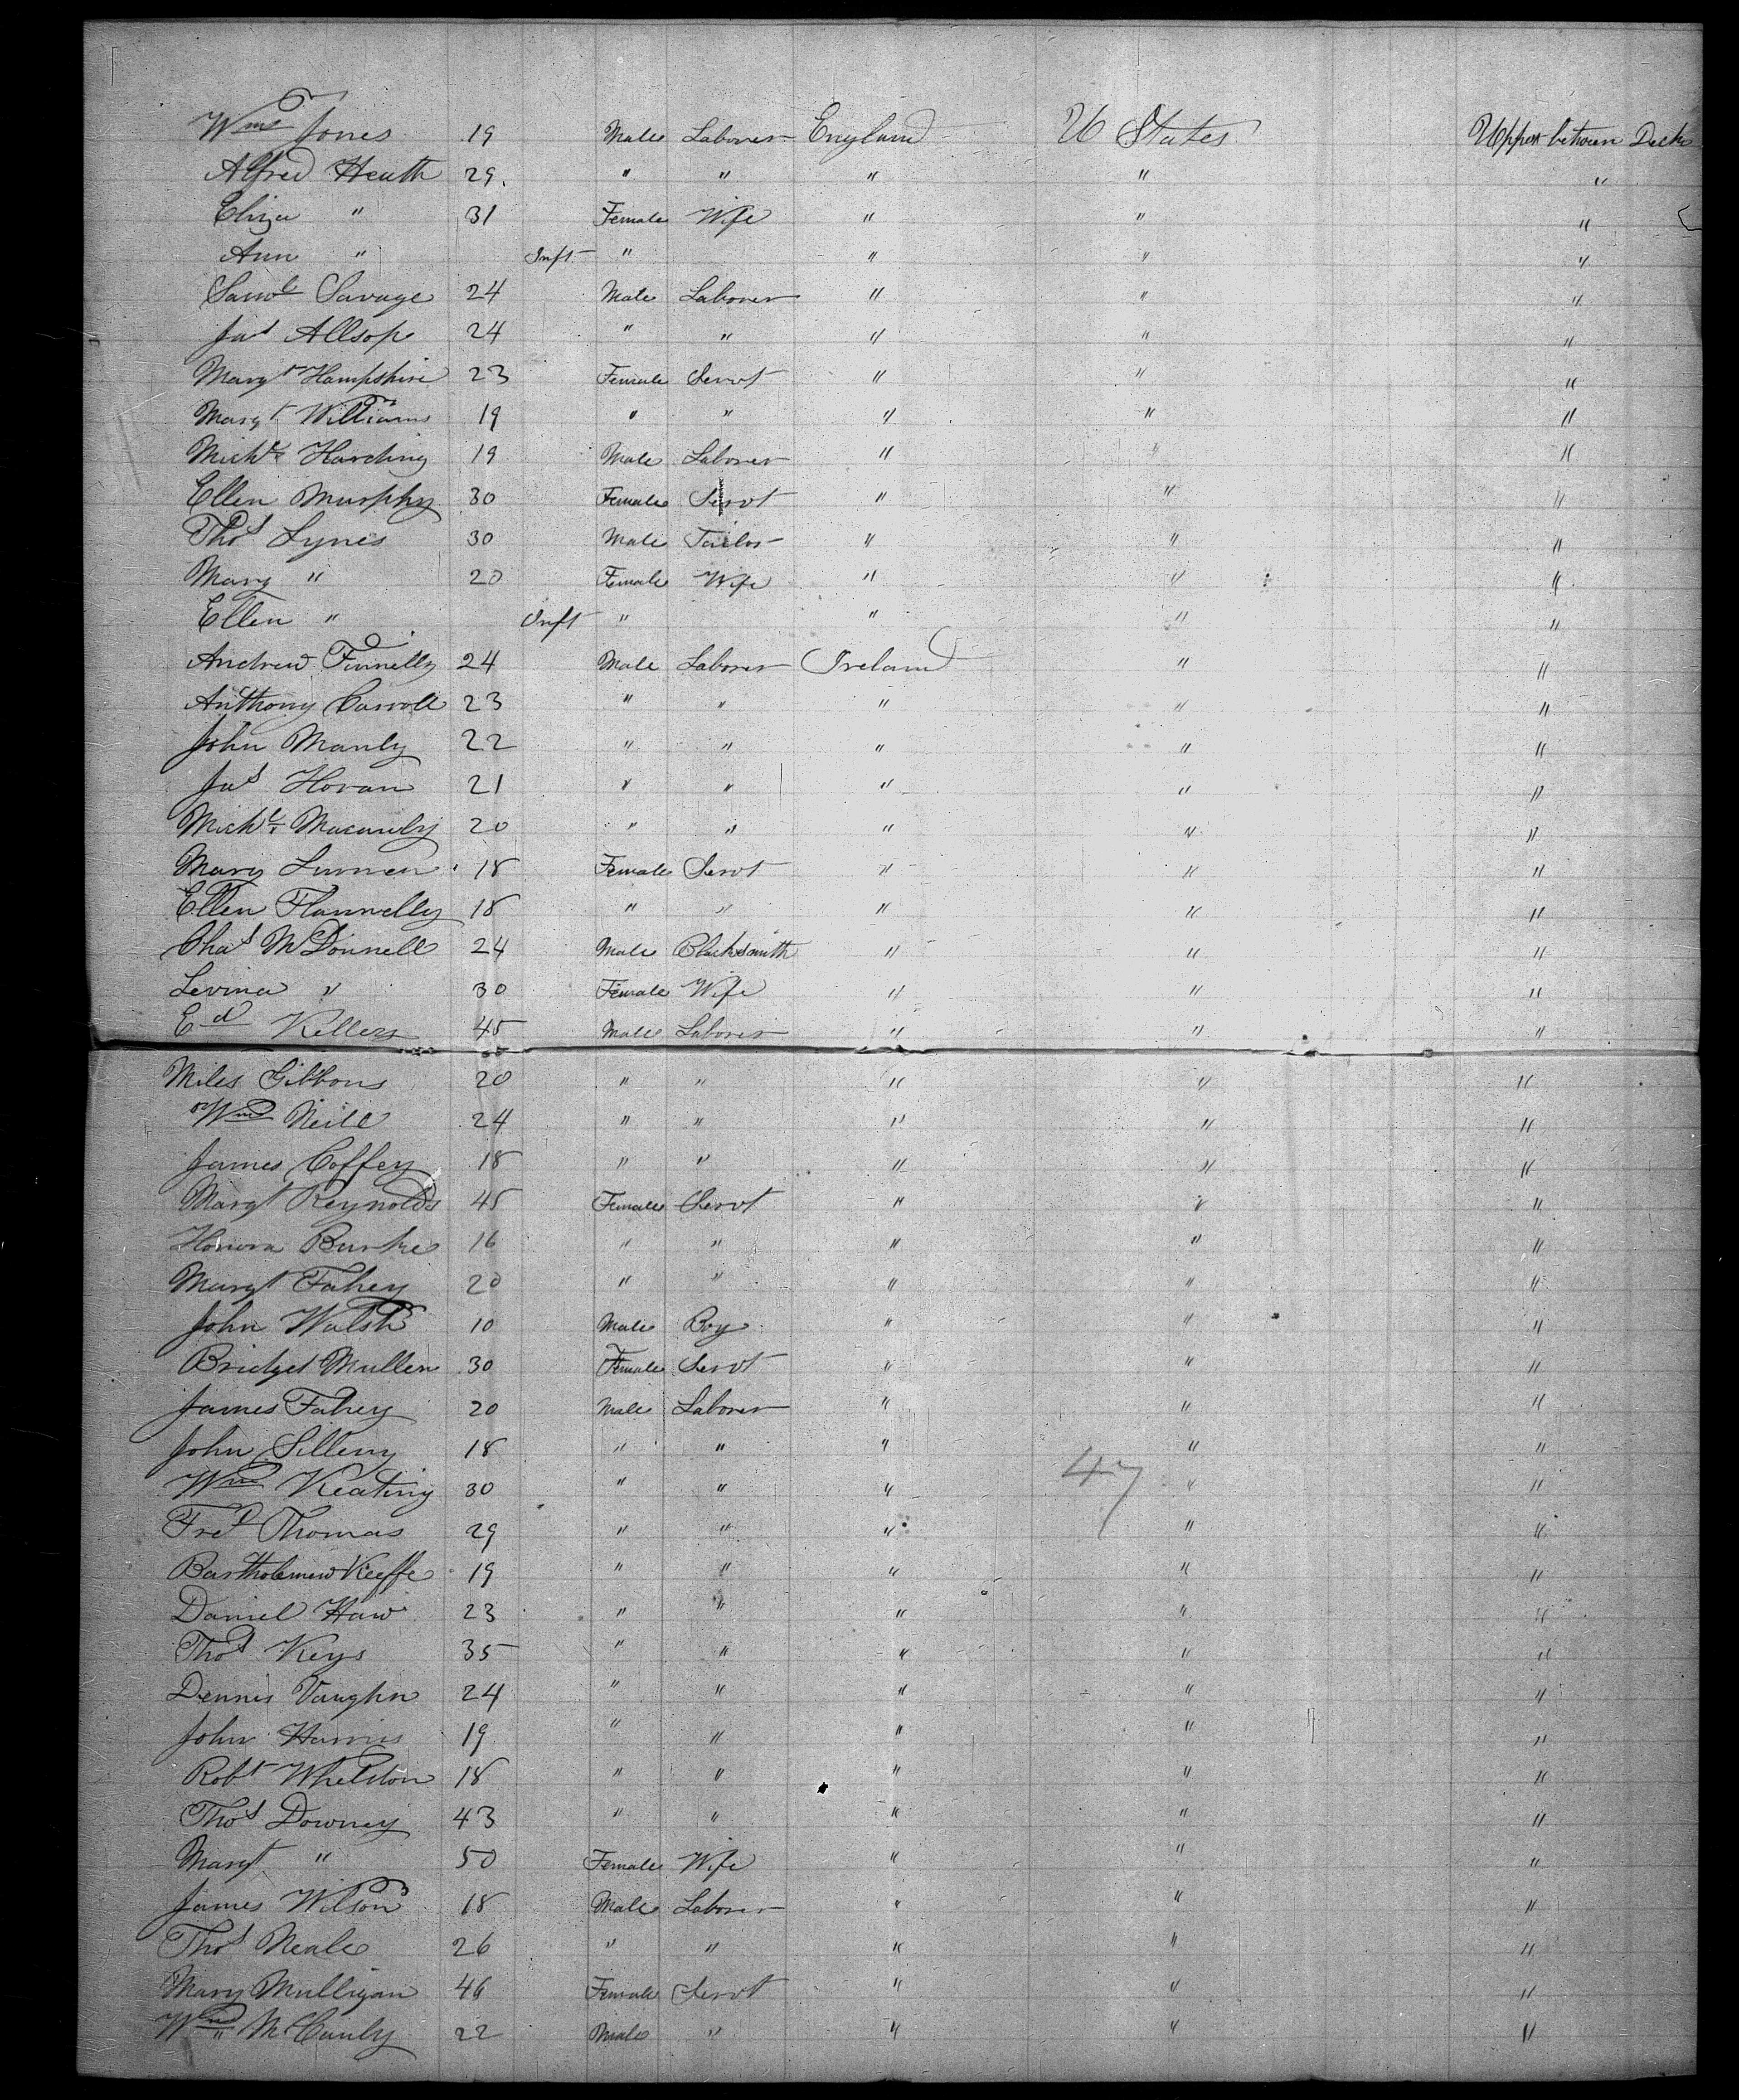 Wm Jones 19 Male Laborer England U States Upper between Decks
Alfred Heath 29. " " " " "
Eliza " 31 Female Wife " " "
Ann " Inft " " " "
Saml Savage 24 Male Laborer " " "
Jas Allsop 24 " " " " "
Margt Hampshire 23 Female Servt " " "
Margt Williams 19 " " " " "
Michl Harding 19 Male Laborer " " "
Ellen Murphy 30 Female Servt " " "
Thos Lynes 30 Male Tailor " " "
Mary " 20 Female Wife " " "
Ellen " Inft " " " "
Andrew Finnelly 24 Male Laborer Ireland " "
Anthony Carroll 23 " " " " "
John Manly 22 " " " " "
Jas Horan 21 " " " " "
Michl Macanly 20 " " " " "
Mary Lunnen 18 Female Servt " " "
Ellen Flannelly 18 " " " " "
Chas McDonnell 24 Male Blacksmith " " "
Levina " 30 Female Wife " " "
Ed Killery 45 Male Laborer " " "
Miles Gibbons 20 " " " " "
Wm Neill 24 " " " " "
James Coffey 18 " " " " "
Margt Reynolds 45 Female Servt " " "
Honora Burke 16 " " " " "
Margt Fahey 20 " " " " "
John Walsh 10 Male Boy " " "
Bridget Mullen 30 Female Servt " " "
James Fahey 20 Male Laborer " " "
John Silleny 18 " " " " "
Wm Keating 30 " " " 47 " "
Fred Thomas 29 " " " " "
Bartholemew Keeffe 19 " " " " "
Daniel Haw 23 " " " " "
Thos Keys 35 " " " " "
Dennis Vaughn 24 " " " " "
John Harris 19 " " " " "
Robt Whelston 18 " " " " "
Thos Downey 43 " " " " "
Margt " 50 Female Wife " " "
James Wilson 18 Male Laborer " " "
Thos Neale 26 " " " " "
Mary Mulligan 46 Female Servt " " "
Wm McCauly 22 Male " " " "